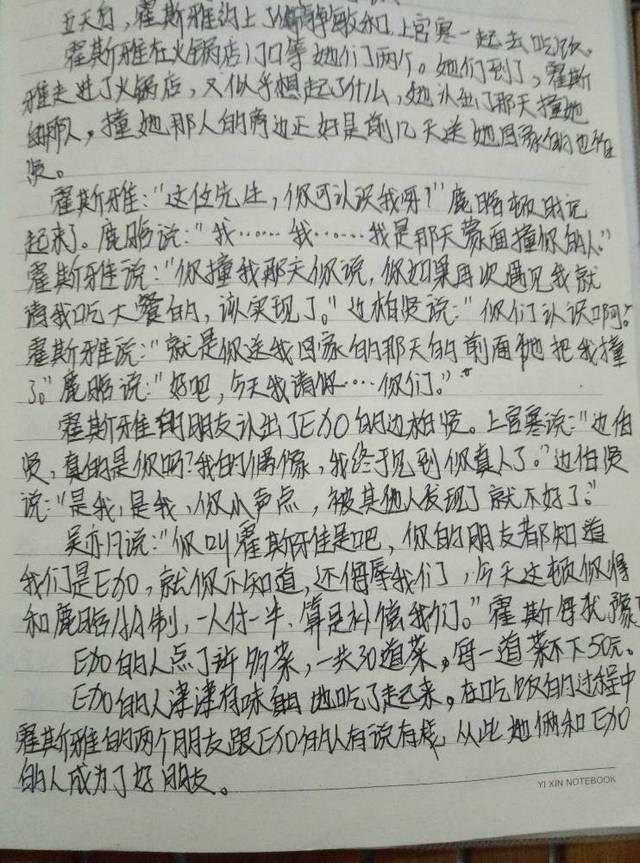 五天后，霍斯雅约上了静敏和上官寒一起去吃饭。
霍斯雅在火锅店门口等她们两个。她们到了，霍斯
雅走进了火锅店，又似乎想起了什么，她认出了那天撞她
的那人，撞她那人的旁边正好是前几天送她回家的边伯
贤。
霍斯雅："这位先生，你可认识我呀？"鹿晗顿时记
起来了。鹿晗说："我……我……我是那天蒙面撞你的人。"
霍斯雅说："你撞我那天你说，你如果再次遇见我就
请我吃大餐的，该实现了。"边柏贤说："你们认识啊？"
霍斯雅说："就是你送我回家的那天的前面他把我撞
了。"鹿晗说："好吧，今天我请你……你们。"
霍斯雅的朋友认出了EXO的边柏贤。上官寒说："边伯
贤，真的是你吗？我的偶像，我终于见到你真人了。"边伯贤
说："是我，是我，你小声点，被其他人发现了就不好了。"
吴亦凡说："你叫霍斯雅是吧，你的朋友都知道
我们是EXO，就你不知道，还侮辱我们，今天这顿你得
和鹿晗AA制，一人付一半，算是补偿我们。"霍斯
EXO的人点了许多菜，一共30道菜，每一道菜不下50元。
EXO的人津津有味的地吃了起来，在吃饭的过程中
霍斯雅的两个朋友跟EXO的人有说有，从此她俩和EXO
的人成为了好朋友。
YI XIN NOTEBOOK